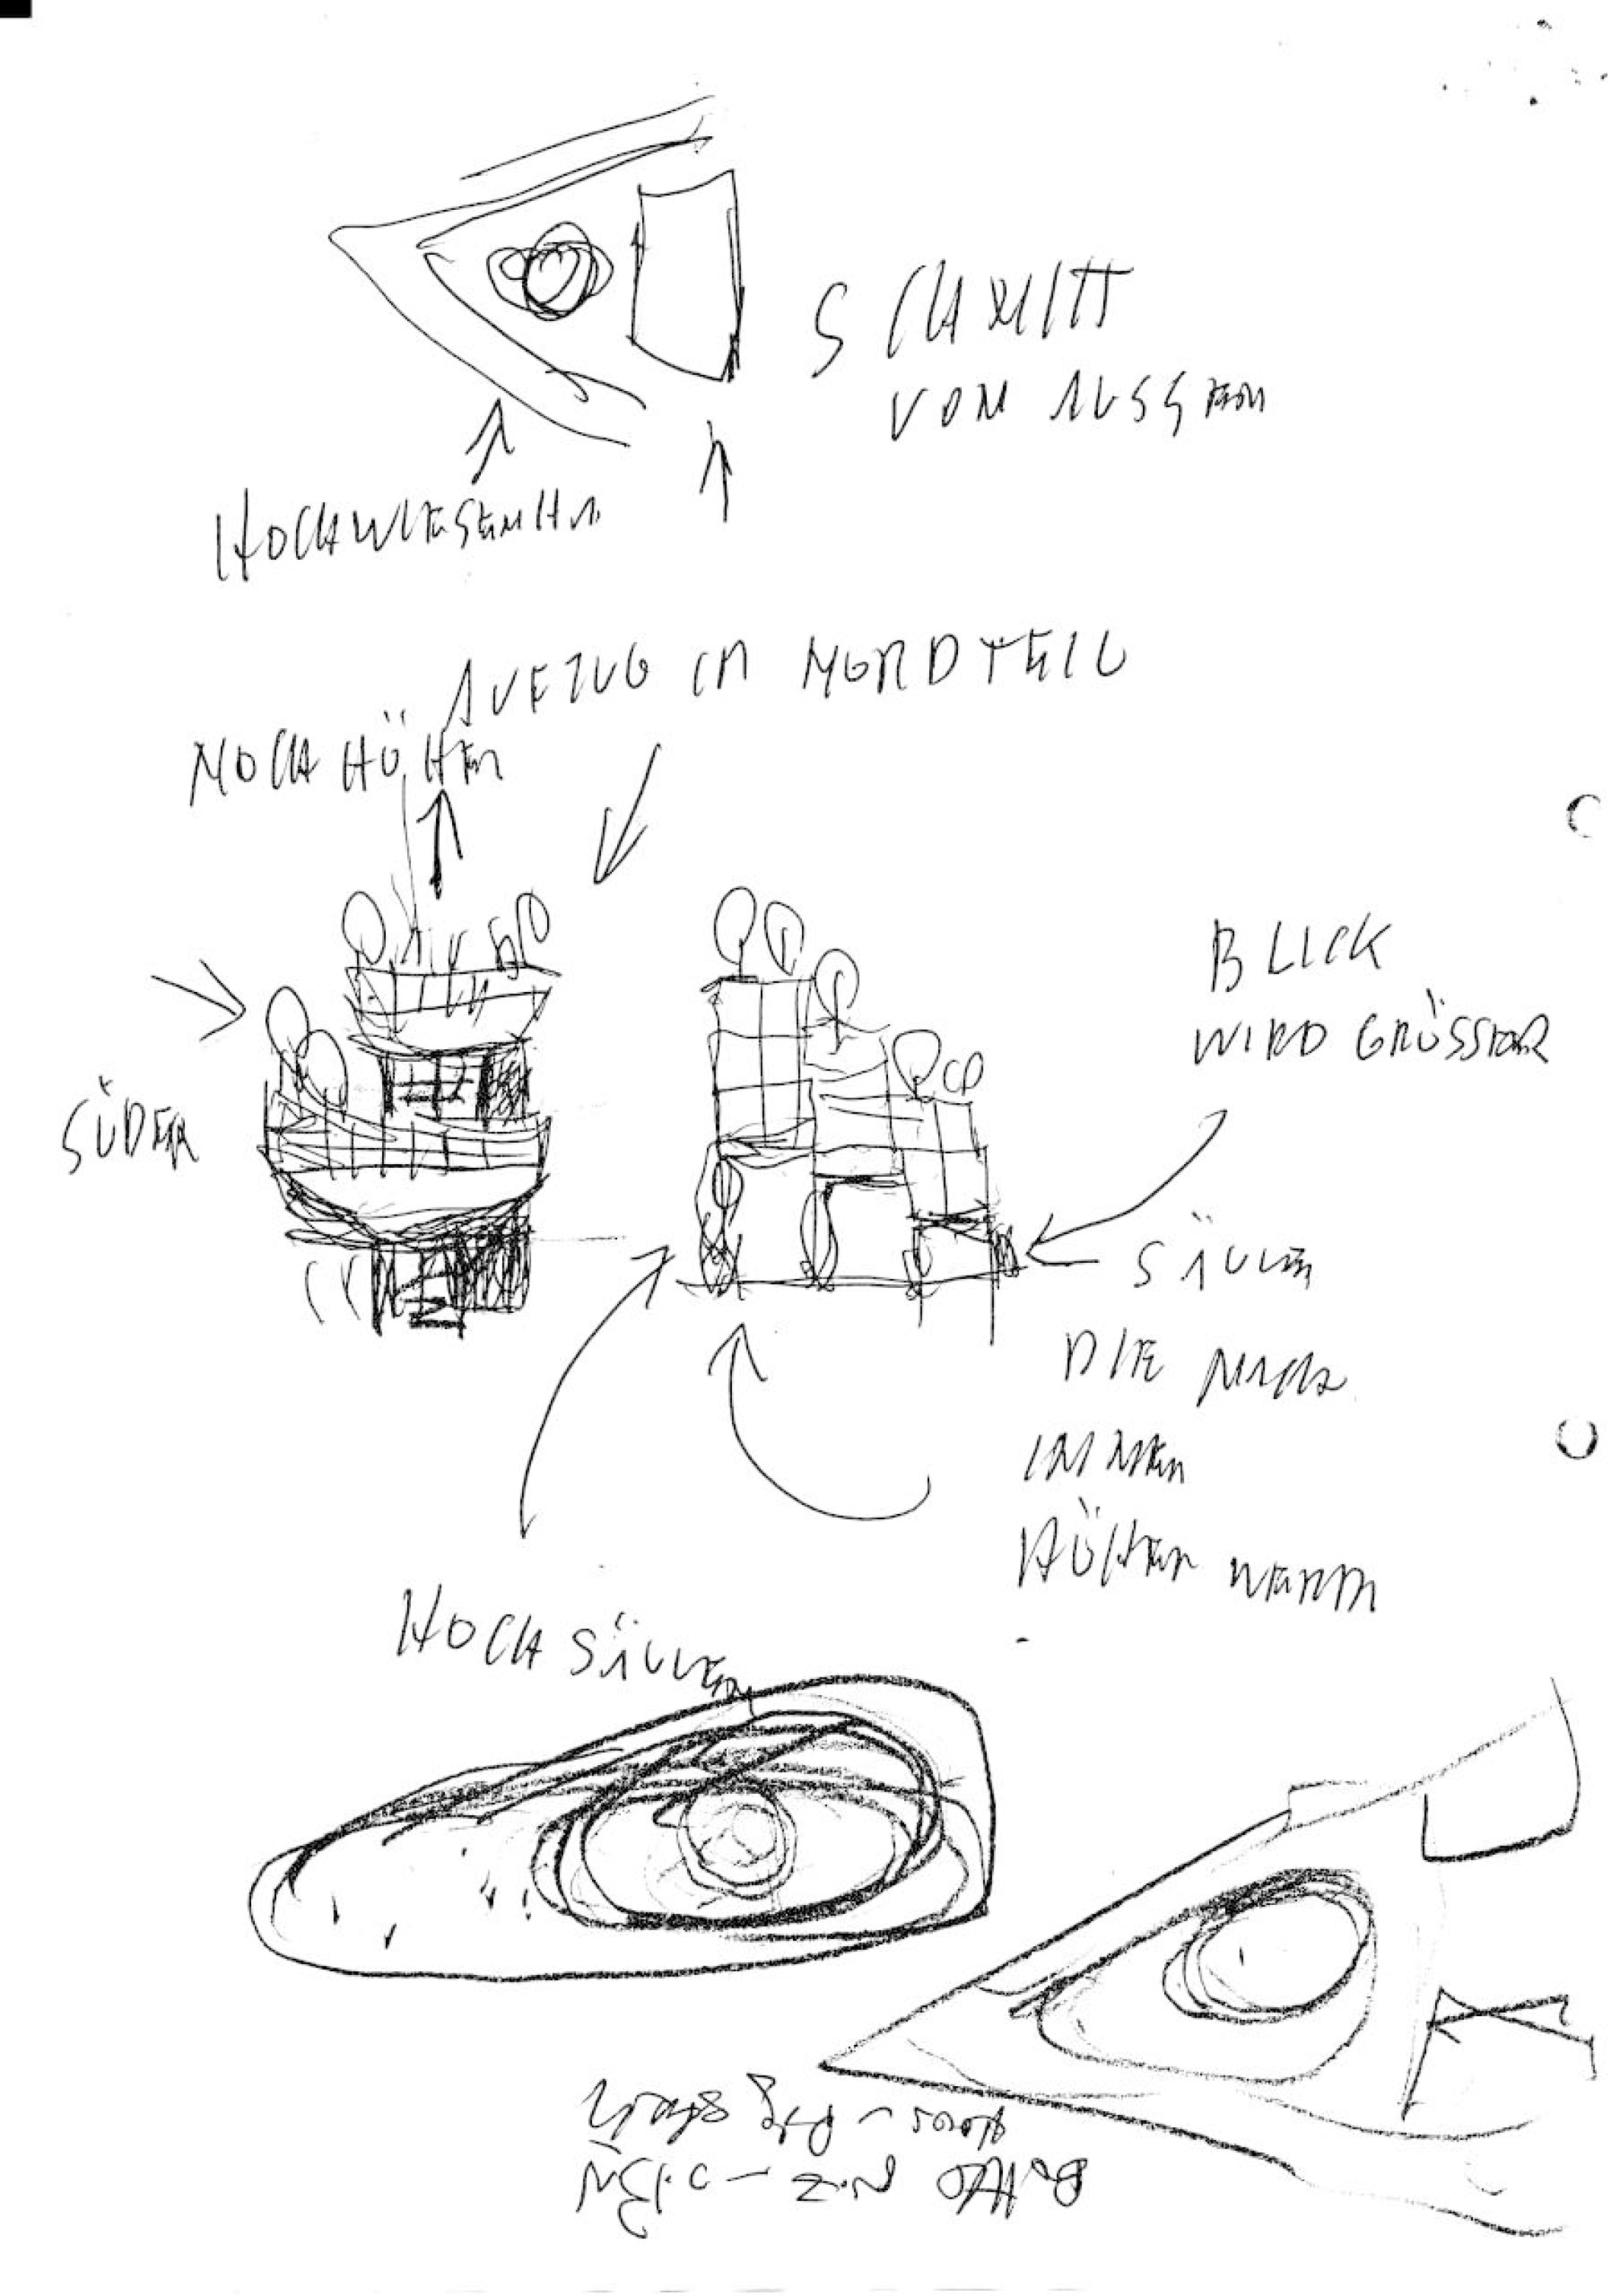 SCHNITT
VON AUSSEN
HOCHWIESENHA
AUFZUG IM NORDTEIL
NOCH HÖHER
BLICK
WIRD GRÖSSER
SÜDEN
SÄULEN
DIE NACH
INNEN
HÖHER WERDEN
HOCH SÄULEN